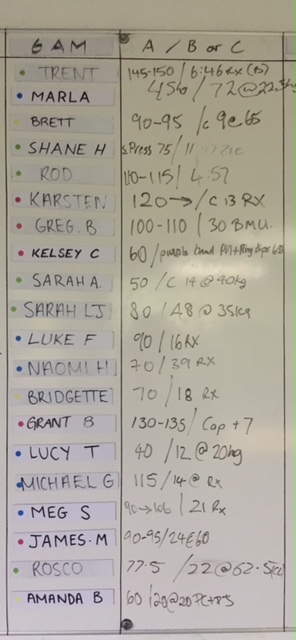 6 AM A / B or C
TRENT 145-150 / 6:46 RX (B)
MARLA 45 / 72@22.5
BRETT 90-95 / C 9@65
SHANE H S.Press 75 / 11
ROD 110-115 / 4:57
KARSTEN 120→ / C 13 RX
GREG. B 100-110 / 30 BMU.
KELSEY C 60 / purple band
SARAH A. 50 / C 14 @ 40kg
SARAH LJ 80 / 48 @ 35kg
LUKE F 90 / 16 RX
NAOMI H 70 / 39 RX
BRIDGETTE 70 / 18 RX
GRANT B 130-135 / Cap + 7
LUCY T 40 / 12 @ 20kg
MICHAEL G 115 / 14 @ RX
MEG S 90→ / 21 RX
JAMES. M 90-95 / 24@60
ROSCO 77.5 / 22@62.5
AMANDA B 60 / 20@20